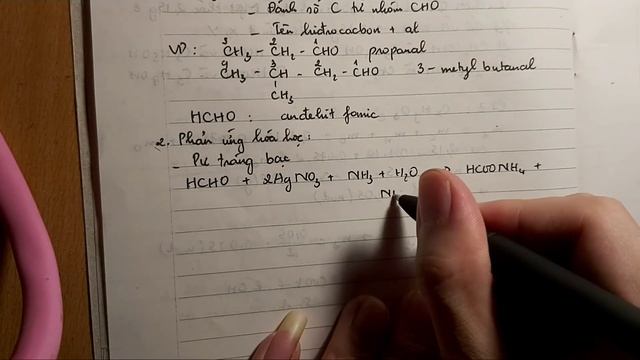 - Đánh số C từ nhóm CHO
- Tên hiđrocacbon + al
VD: ³CH₃ - ²CH₂ - ¹CHO propanal
⁴CH₃ - ³CH - ²CH₂ - ¹CHO 3-metyl butanal
CH₃
HCHO : anđehit fomic
2. Phản ứng hóa học:
- Pư tráng bạc
HCHO + 2AgNO₃ + NH₃ + H₂O HCOONH₄ +